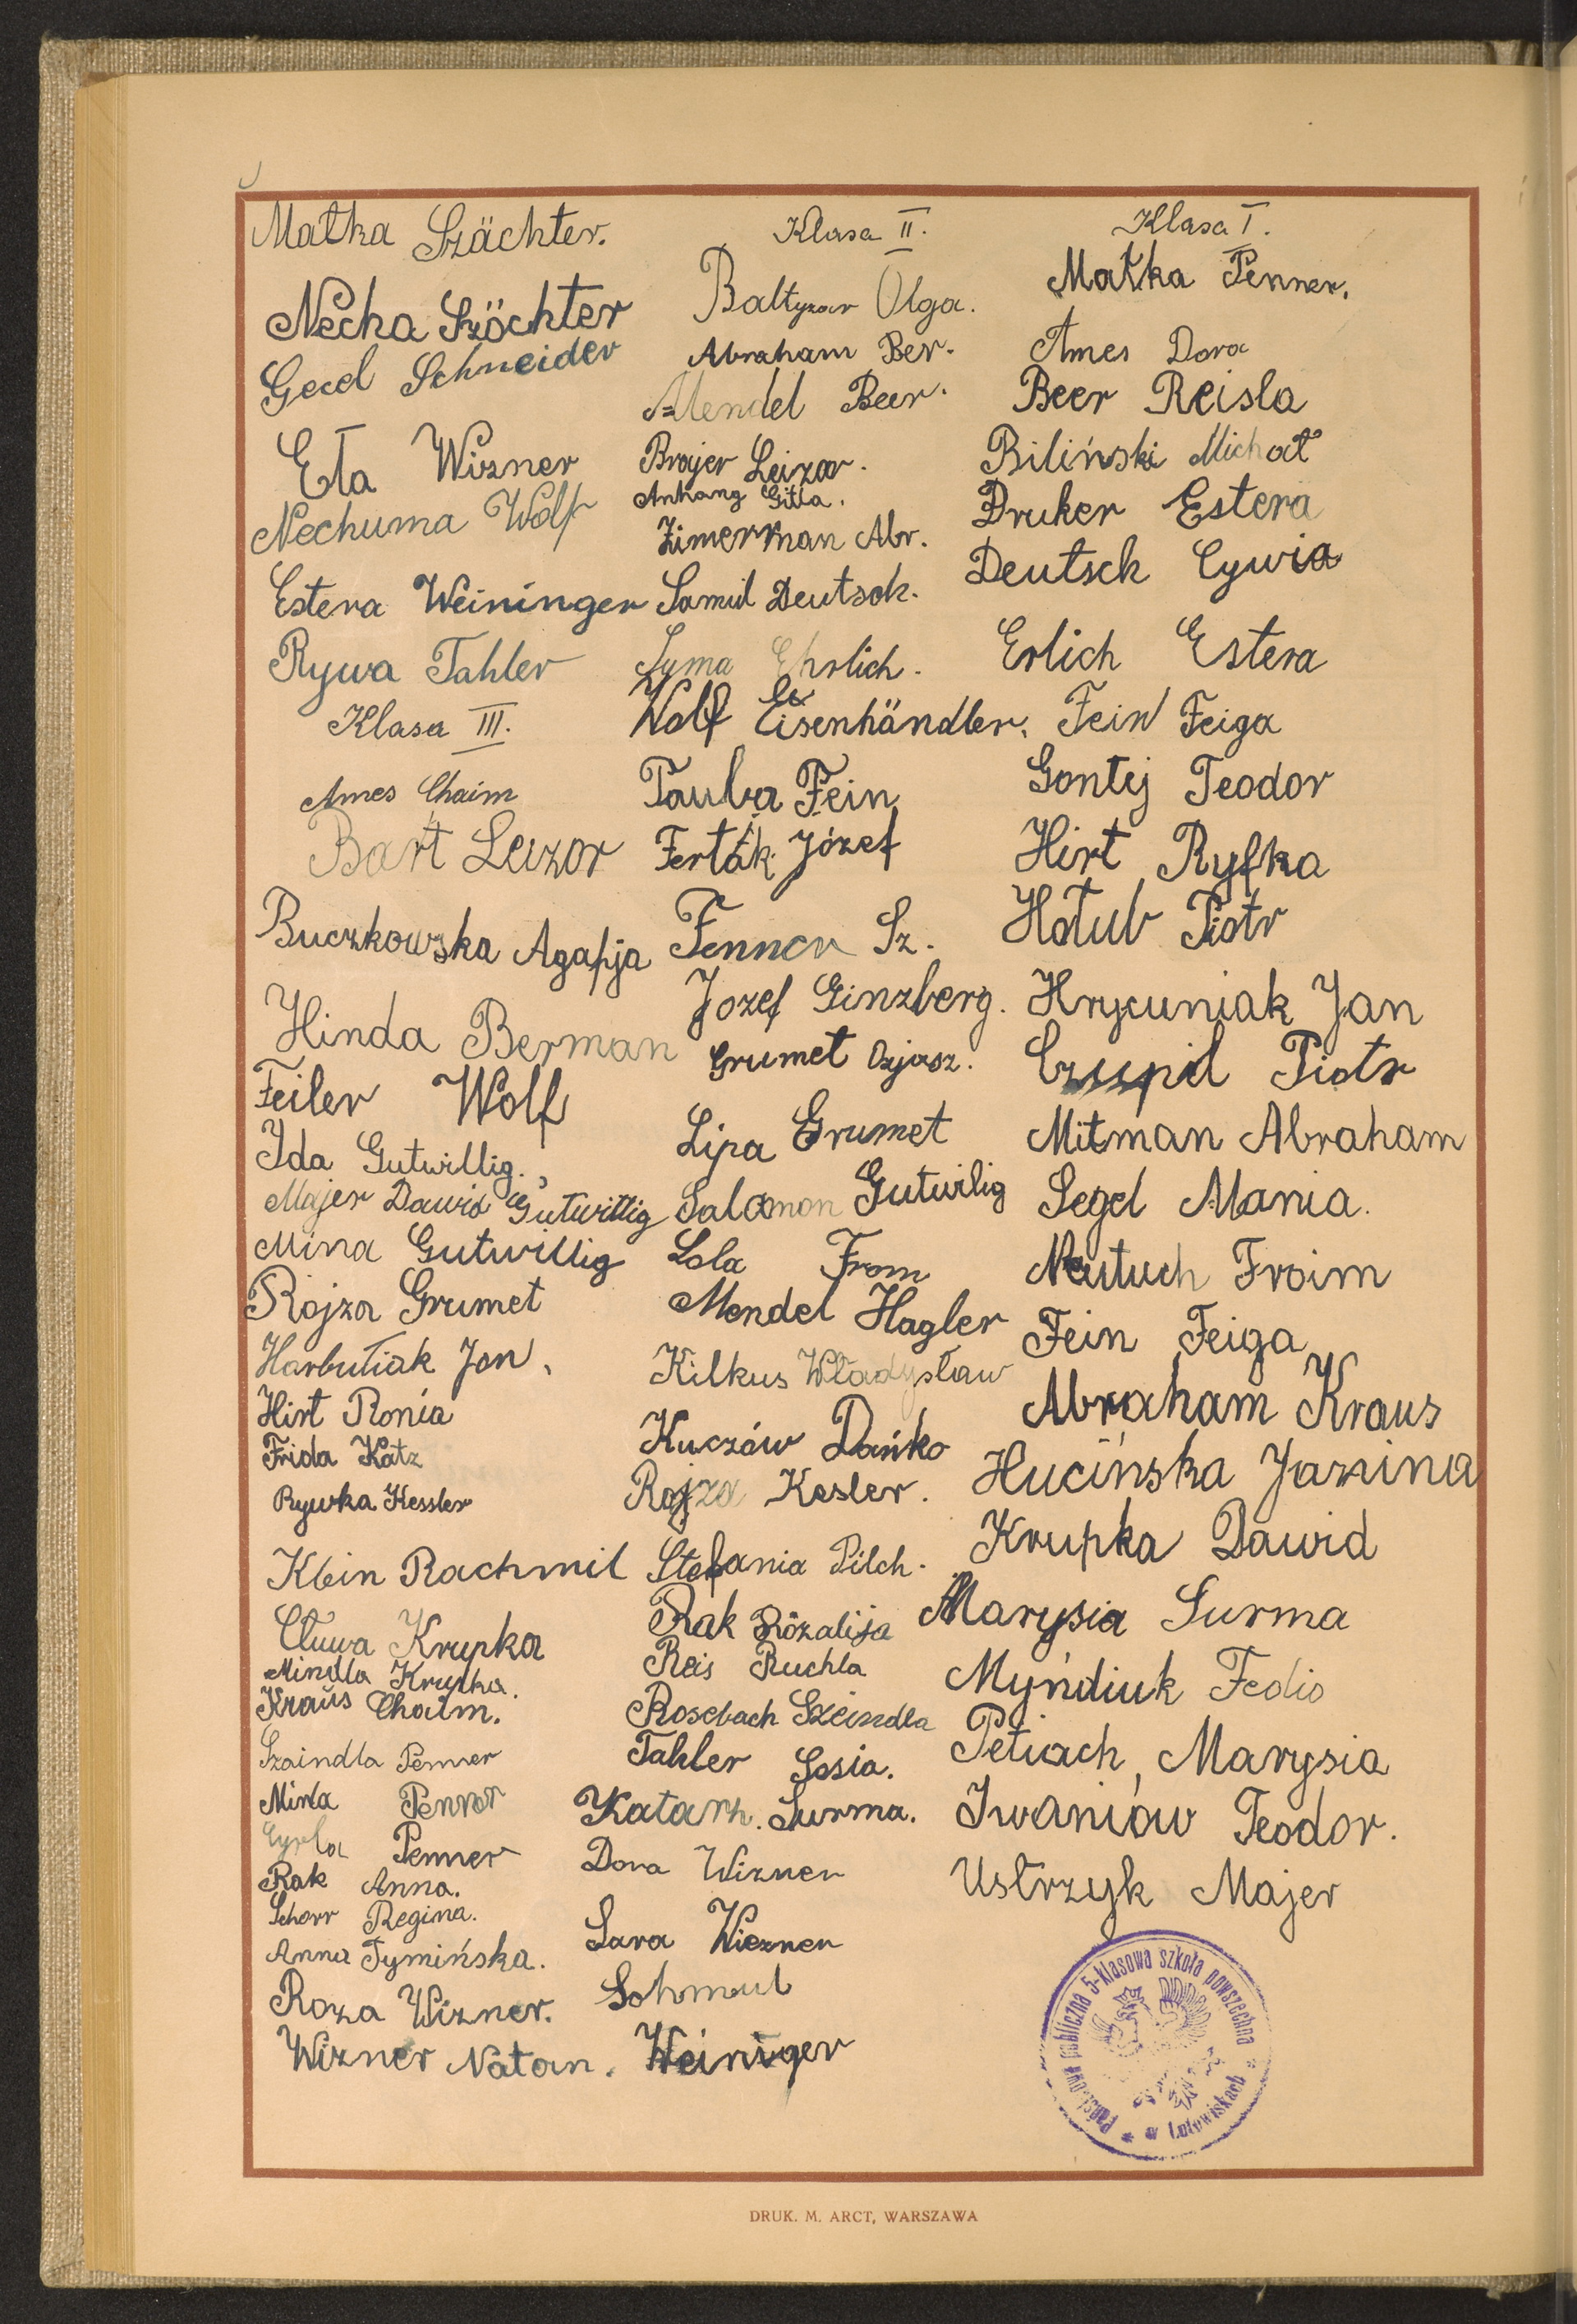 Matka Szächter.
Necha Szöchter
Gecel Schneider
Eta Wizner
Nechuma Wolf
Estera Weininger
Rywa Tahler
Klasa III.
Ames Chaim
Bart Leizor
Buczkowska Agapja
Hinda Berman
Feiler Wolf
Ida Gutwillig.
Majer Dawid Gutwillig
Mina Gutwillig
Rojza Grumet
Harbutiak Jan.
Hirt Ronia
Frida Katz
Rywka Kessler
Klein Rachmil
Cluwa Krupka
Mindla Krupka.
Kraus Chaim.
Szaindla Penner
Minla Penner
Cyrla Penner
Rak Anna.
Schorr Regina.
Anna Tymińska.
Roza Wizner.
Wizner Natan.
Klasa II.
Baltyzar Olga.
Abraham Ber.
Mendel Beer.
Brajer Leizor.
Anhang Gitla.
Zimerman Abr.
Samul Deutsch.
Syma Ehrlich.
Wolf Eisenhändler.
Tauba Fein
Ferták Józef
Fenner Sz.
Jozef Ginzberg.
Grumet Ozjasz.
Lipa Grumet
Salomon Gutwilig
Lola From
Mendel Hagler
Kilkus Władysław
Kuczów Dańko
Rojza Kesler.
Stefania Pilch.
Rak Rózalija
Reis Ruchla
Rosebach Szeindla
Tahler Sosia.
Katarh. Surma.
Dora Wizner
Sara Wiezner
Schmul
Weiniger
Klasa I.
Matka Penner.
Ames Dora
Beer Reisla
Biliński Michał
Druker Estera
Deutsch Cywia
Erlich Estera
Fein Feiga
Gontej Teodor
Hirt Ryfka
Hołub Piotr
Hrycuniak Jan
Czupil Piotr
Mitman Abraham
Segel Mania.
Neutuch Froim
Fein Feiga
Abraham Kraus
Hucińska Janina
Krupka Dawid
Marysia Surma
Myńdiuk Fedio
Petiach, Marysia
Iwaniów Teodor.
Ustrzyk Majer
Państwowa publiczna 5-klasowa szkoła powszechna
w Lutowiskach
DRUK. M. ARCT, WARSZAWA